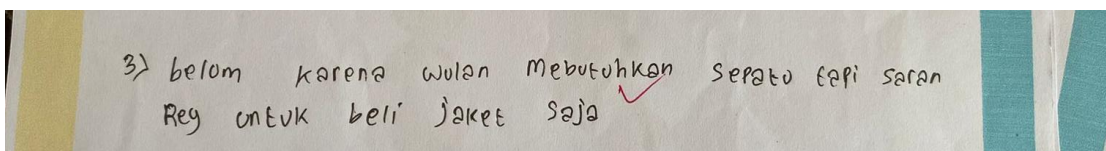 3) belom karena wulan mebutuhkan sepatu tapi saran
Rey untuk beli jaket saja